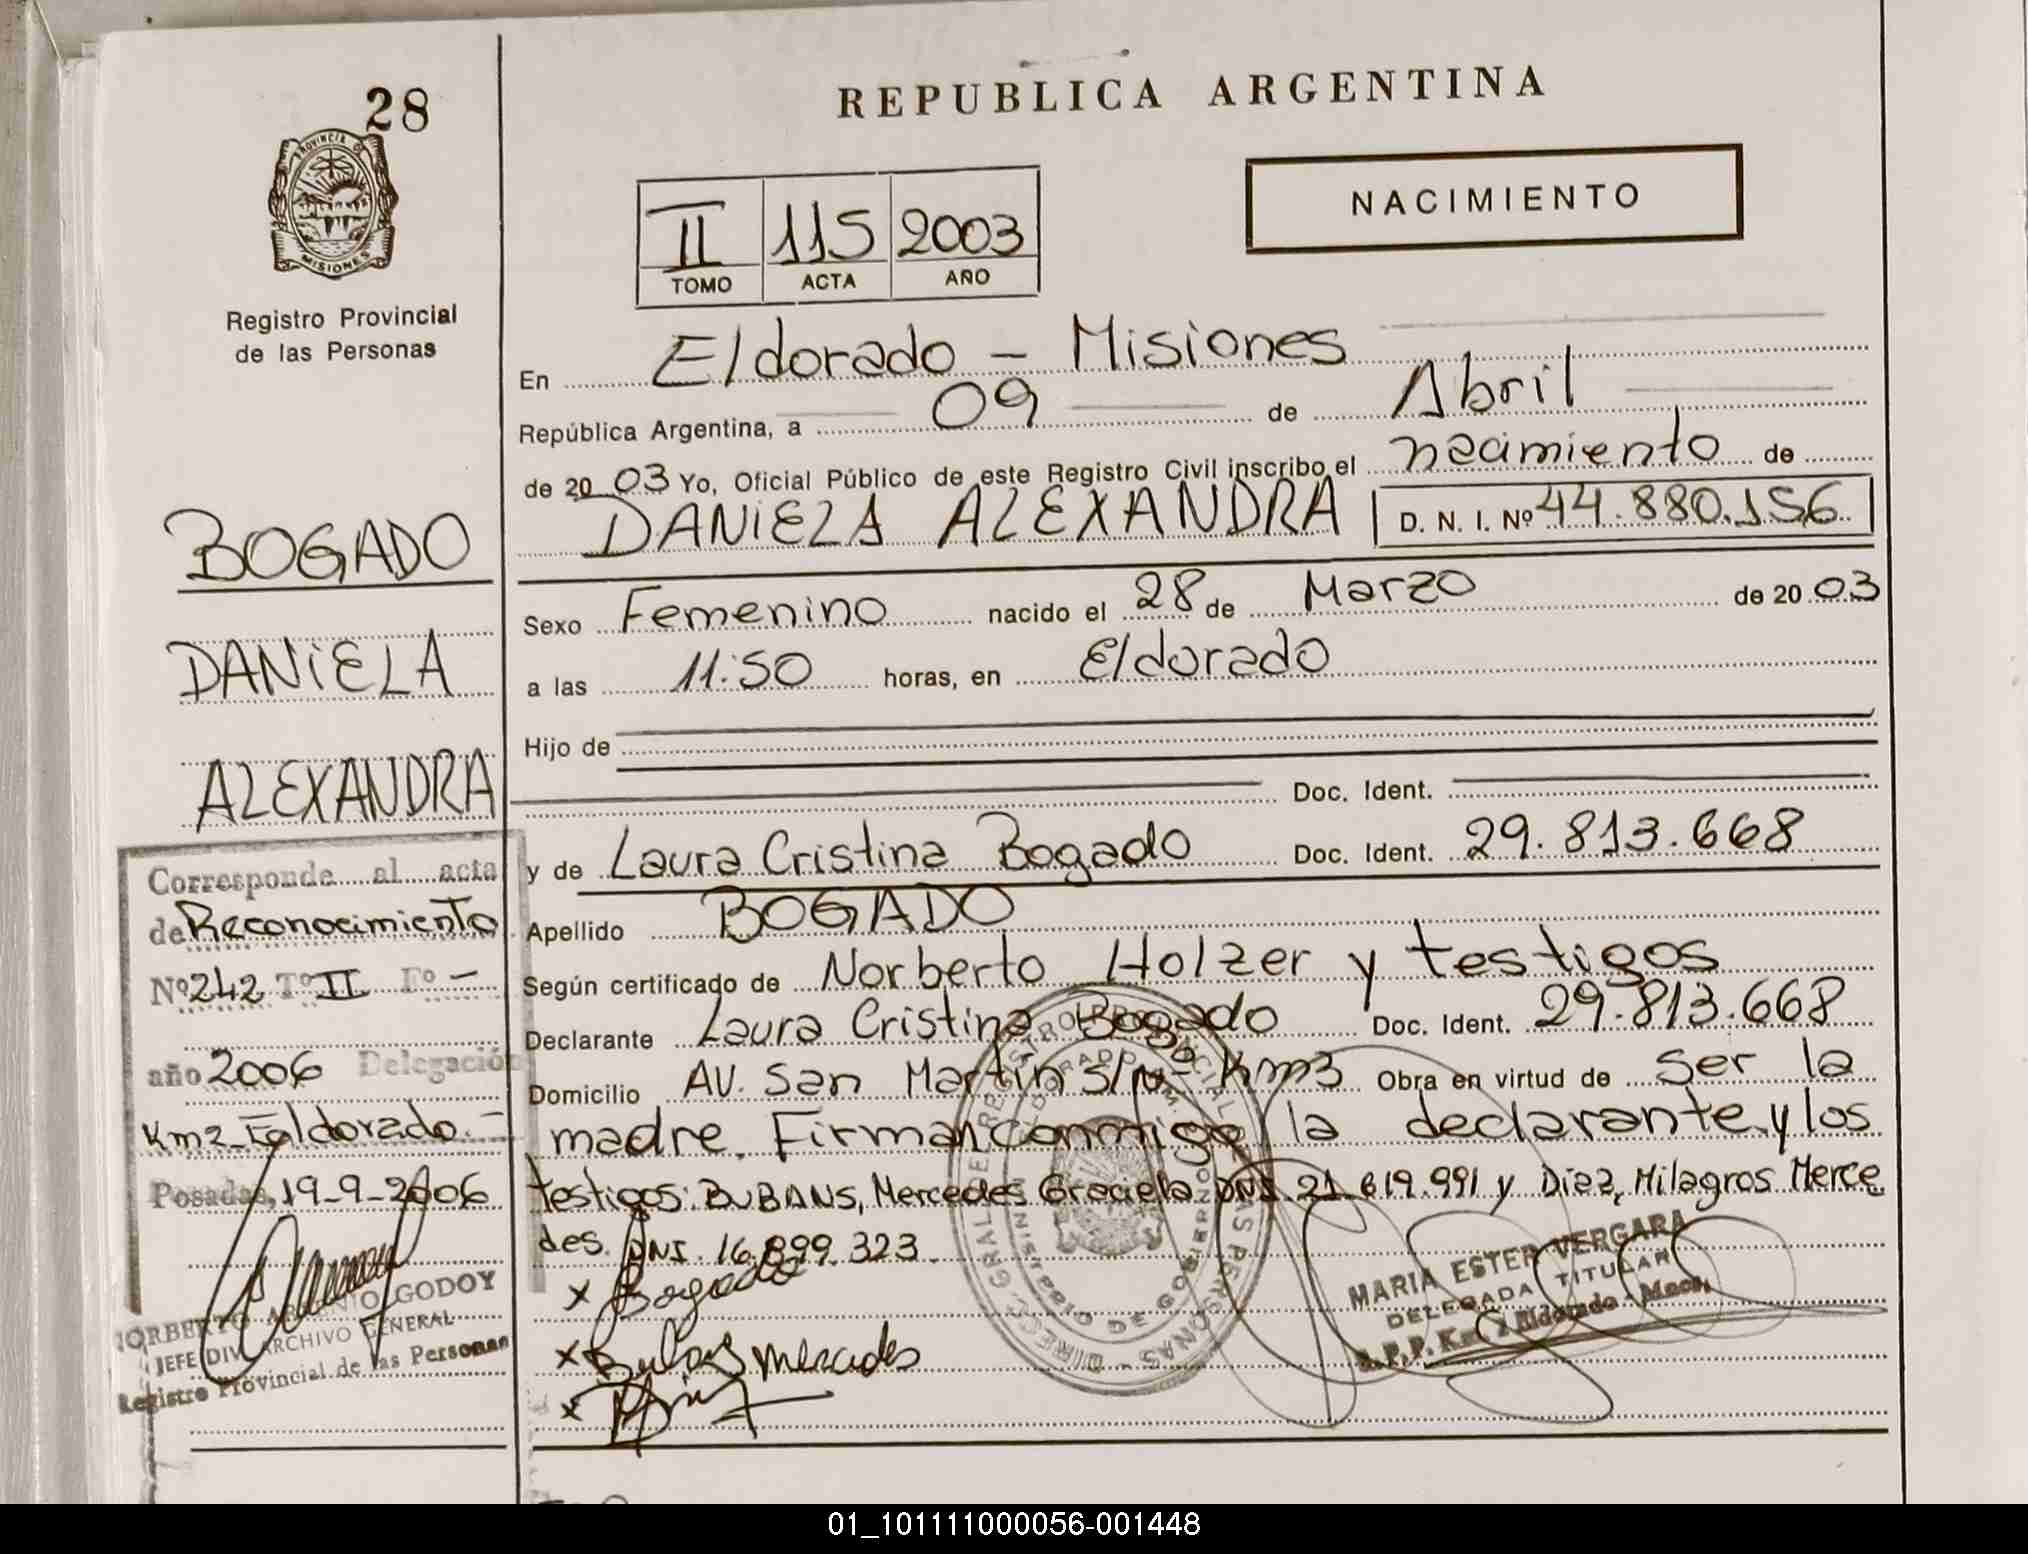 28
PROVINCIA DE
MISIONES
Registro Provincial
de las Personas
BOGADO
DANIELA
ALEXANDRA
Corresponde al acta
de Reconocimiento
Nº 242 Tº II Fº -
año 2006 Delegación
Km2 - Eldorado. -
Posadas, 19-9-2006
NORBERTO GODOY
JEFE DIV. ARCHIVO GENERAL
Registro Provincial de las Personas
REPUBLICA ARGENTINA
NACIMIENTO
II 115 2003
TOMO ACTA AÑO
En Eldorado - Misiones
República Argentina, a 09 de Abril
de 20 03 Yo, Oficial Público de este Registro Civil inscribo el nacimiento de
DANIELA ALEXANDRA D. N. I. Nº 44.880.156
Sexo Femenino nacido el 28 de Marzo de 20 03
a las 11:50 horas, en Eldorado
Hijo de
Doc. Ident.
y de Laura Cristina Bogado Doc. Ident. 29.813.668
Apellido BOGADO
Según certificado de Norberto Holzer y testigos
Declarante Laura Cristina Bogado Doc. Ident. 29.813.668
Domicilio AV. San Martín S/Nº Km3 Obra en virtud de ser la
madre. Firman conmigo la declarante y los
testigos: BUBANS, Mercedes Graciela DNI. 21.619.991 y Diaz, Milagros Merce
des. DNI. 16.899.323
x Bogado
x Bubans Mercedes
x
MARIA ESTER VERGARA
DELEGADA TITULAR
R.P.P. Km. 2 Eldorado - Mnes.
01_101111000056-001448